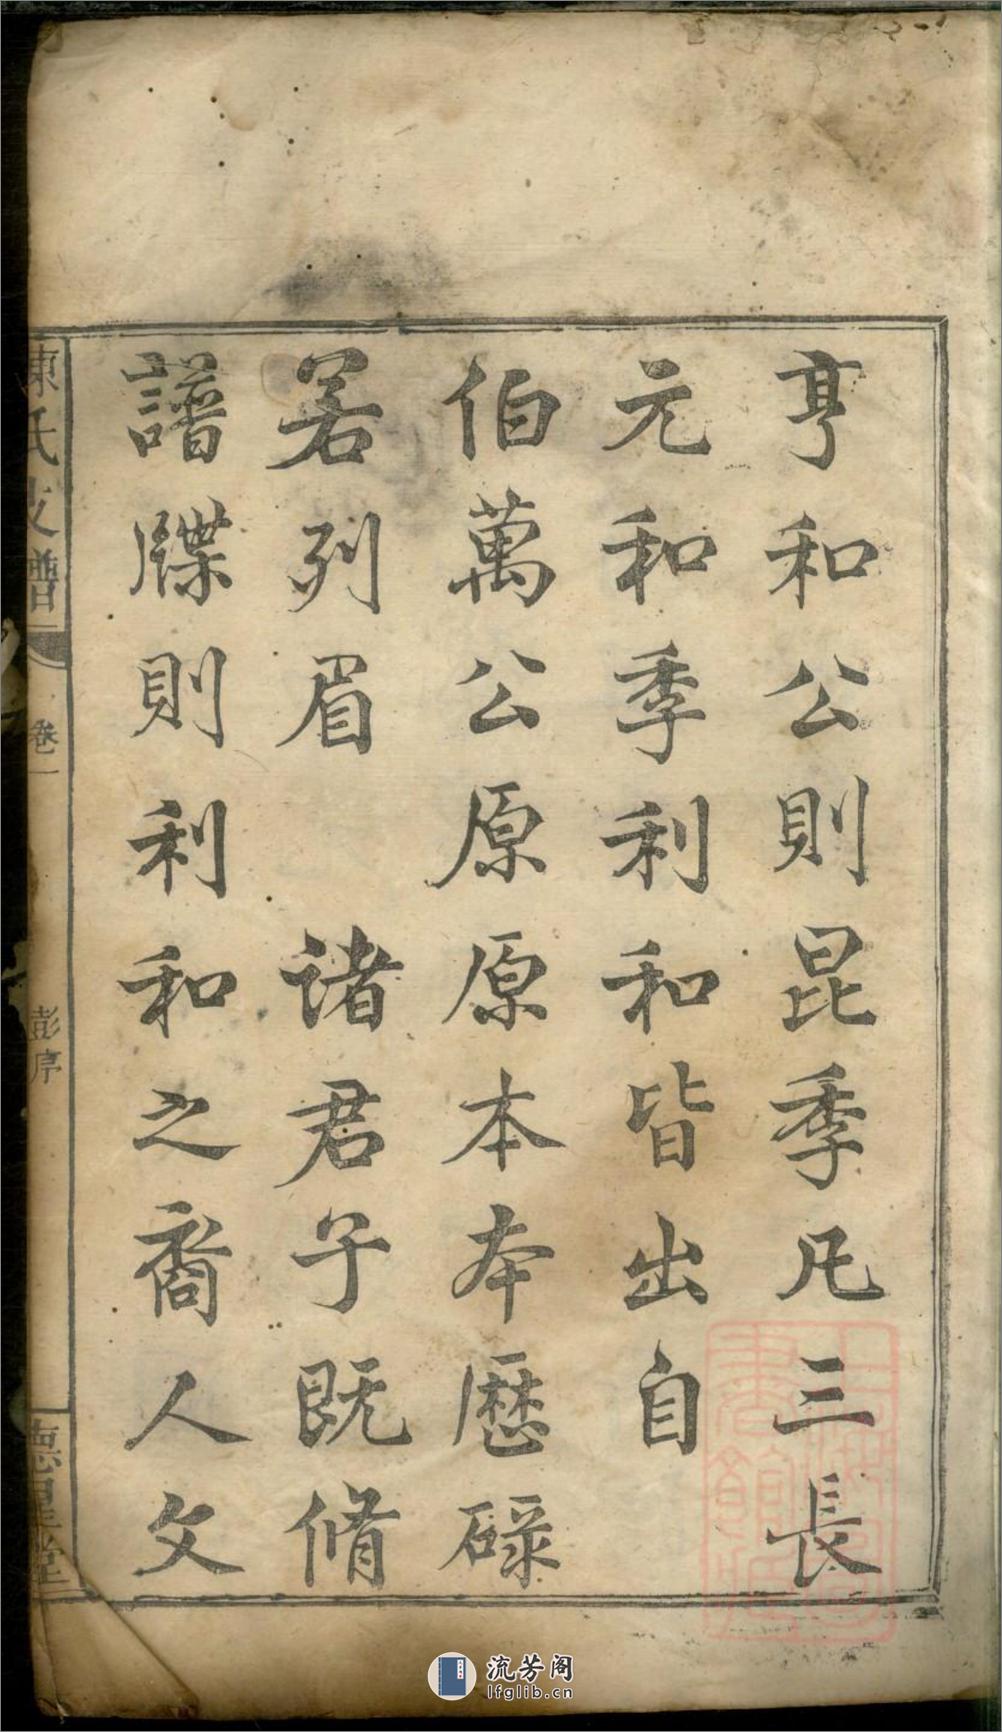 亨和公則昆季凡三長
元和季利和皆出自
伯萬公原原本本歷碌
若列眉　諸君子既脩
譜牒則利和之裔人文
陳氏支譜
卷一
彭序
德星堂
流芳阁
lfglib.cn